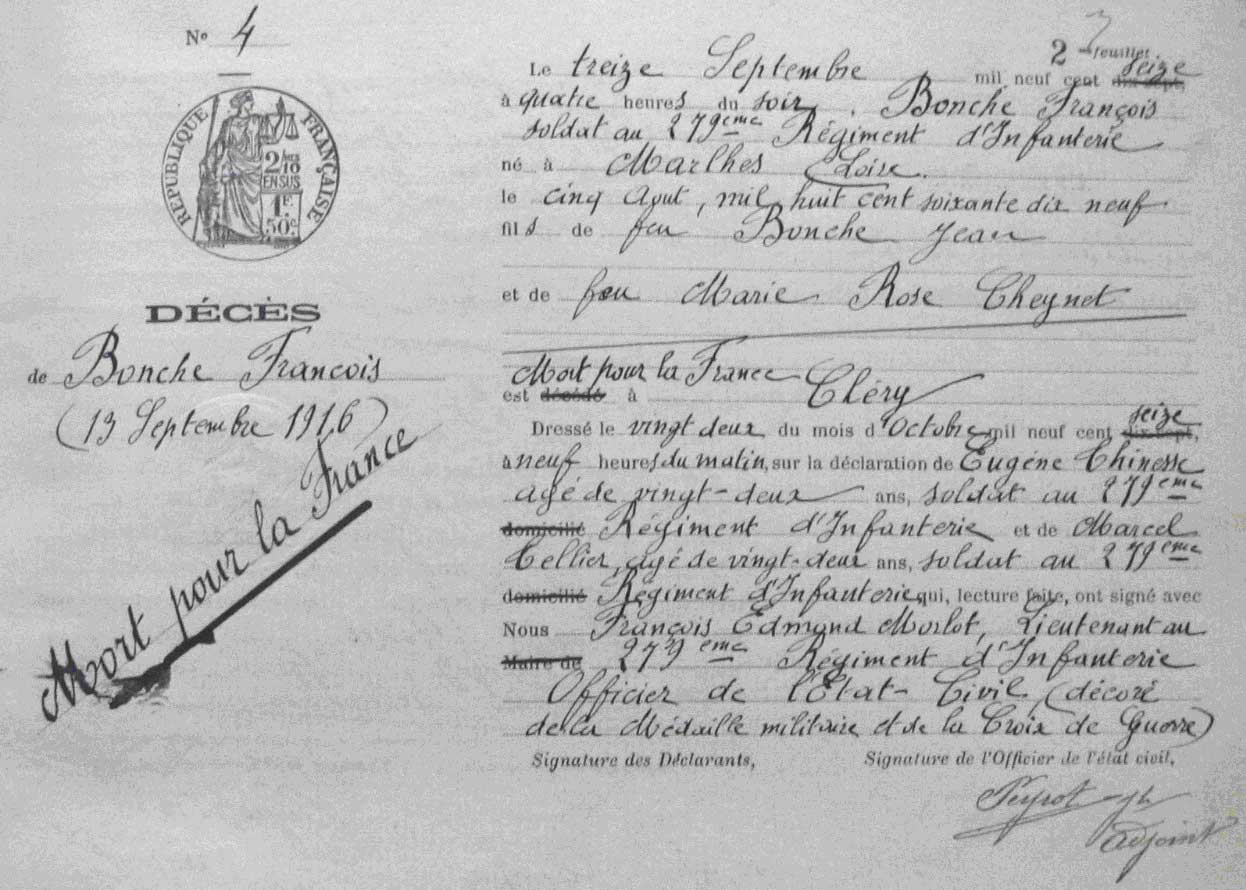 No 4
RÉPUBLIQUE FRANÇAISE
2/10
EN SUS
1F.
50c.
DÉCÈS
de Bonche Francois
(13 Septembre 1916)
Mort pour la France
2 feuillet
seize
Le treize Septembre mil neuf cent dix-sept,
à quatre heures du soir, Bonche François
soldat au 279eme Régiment d'Infanterie
né à Marlhes Loire.
le cinq Aout, mil huit cent soixante dix neuf
fils de feu Bonche Jean
et de feu Marie Rose Cheynet
Mort pour la France
est décédé à Cléry
seize
Dressé le vingt deux du mois d'Octobre mil neuf cent dix-sept,
à neuf heures du matin, sur la déclaration de Eugène Chinesse
agé de vingt-deux ans, soldat au 279eme
domicilié Régiment d'Infanterie et de Marcel
Tellier, agé de vingt-deux ans, soldat au 279eme
domicilié Régiment d'Infanterie qui, lecture faite, ont signé avec
Nous François Edmond Morlot, Lieutenant au
Maire de 279eme Régiment d'Infanterie
Officier de l'Etat-Civil, (décoré
de la Médaille militaire et de la Croix de Guerre)
Signature des Déclarants, Signature de l'Officier de l'état civil,
Peyrot
adjoint